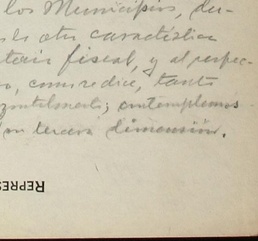 los Municipios, du-
la otra característica
tario fiscal, y al respec-
o, como se dice, tanto
zontalmente; contemplemos
un tercera dimensión.
REPRES